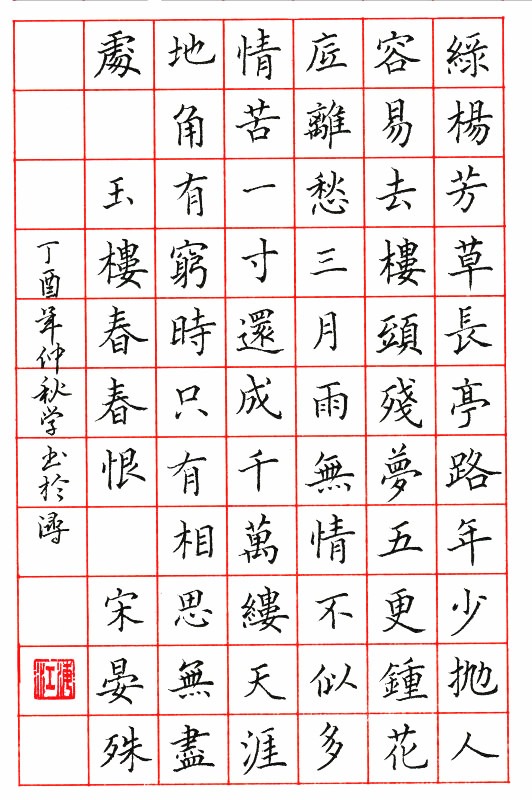 綠楊芳草長亭路年少拋人
容易去樓頭殘夢五更鍾花
底離愁三月雨無情不似多
情苦一寸還成千萬縷天涯
地角有窮時只有相思無盡
處 玉樓春春恨 宋晏殊
丁酉年仲秋学书於潯